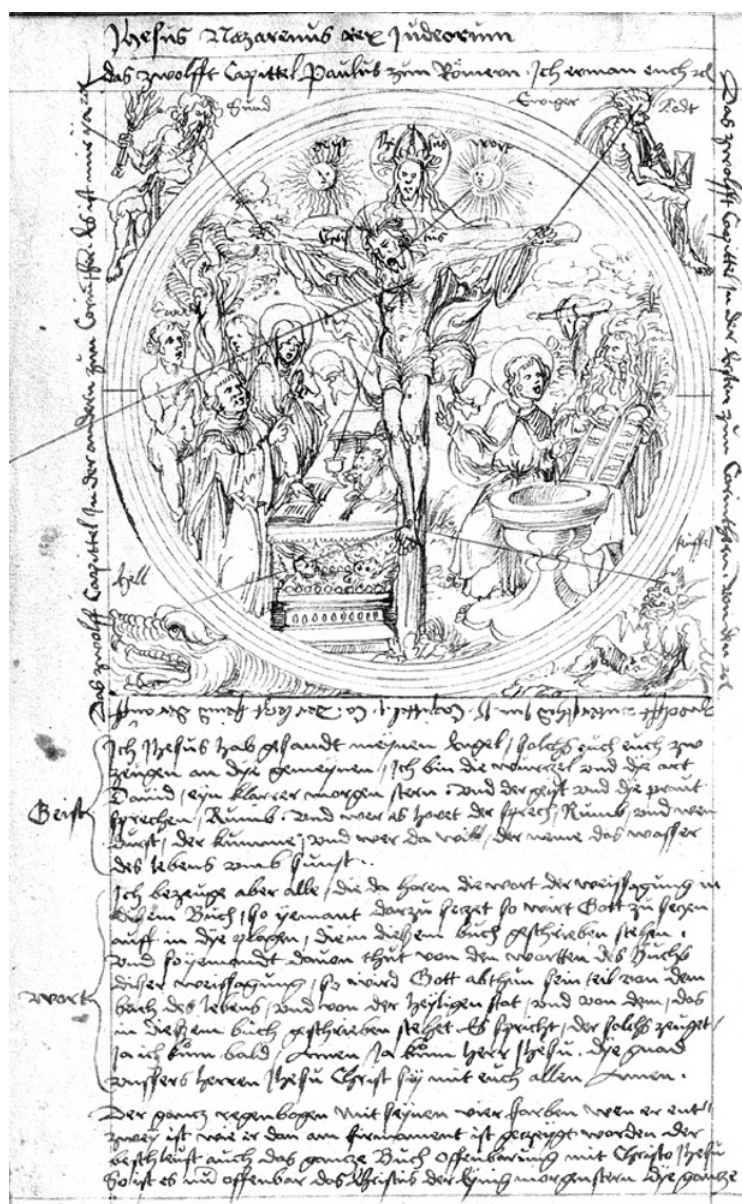 Jhesus Nazarenus rex Judeorum
das zwolfft Capittel Paulus zum Römern. Ich erman euch
Das zwolfft Capittel In der andern zum Corinther. Es ist mir ja
Das zwolfft Capittel In der ersten zum Corinthern. Von den
Sund
Ewiger Todt
geist Jhesus wort
Cristus
hell
teuffel
Ich Jhesus hab gesandt meynen Engel / solchs euch zw
zeugen an dye gemeynen / Ich bin die wurzel vnd dye art
Dauid / eyn klarrer morgen stern vnd der geyst vnd dye praut
sprechen / Kumb vnd wer es horet der sprech / Kumb vnd wen
durst / der kumme / vnd wer da will / der neme das wasser
des lebens vmb sunst ..
Geist
Ich bezeuge aber alle / die da horen die wort der weissagung in
dissem Buch / so yemant darzu sezet so wirt Gott zu sezen
auff in dye plagen / die in dissem buch geschrieben stehen .
vnd so yemandt dauon thut von den wortten des buchs
diser weissagung / so wird Gott abthun sein teil von dem
buch des lebens / vnd von der heyligen stat / vnd von dem / das
in dissem buch geschrieben stehet Es spricht / der solchs zeuget /
Ja ich kum bald / Amen / Ja kum herr Jhesu . dye gnad
vnssers herren Jhesu Christ sey mit euch allen Amen .
wort
Der gantz regenbogen mit seynen vier farben wen er ent
zwey ist wie er dan am firmament ist gezeygt worden der
beschleust auch das gantze Buch offenbarung mit Christo Jhesu
So ist es nu offenbar das Christus der morgenstern dye gantze